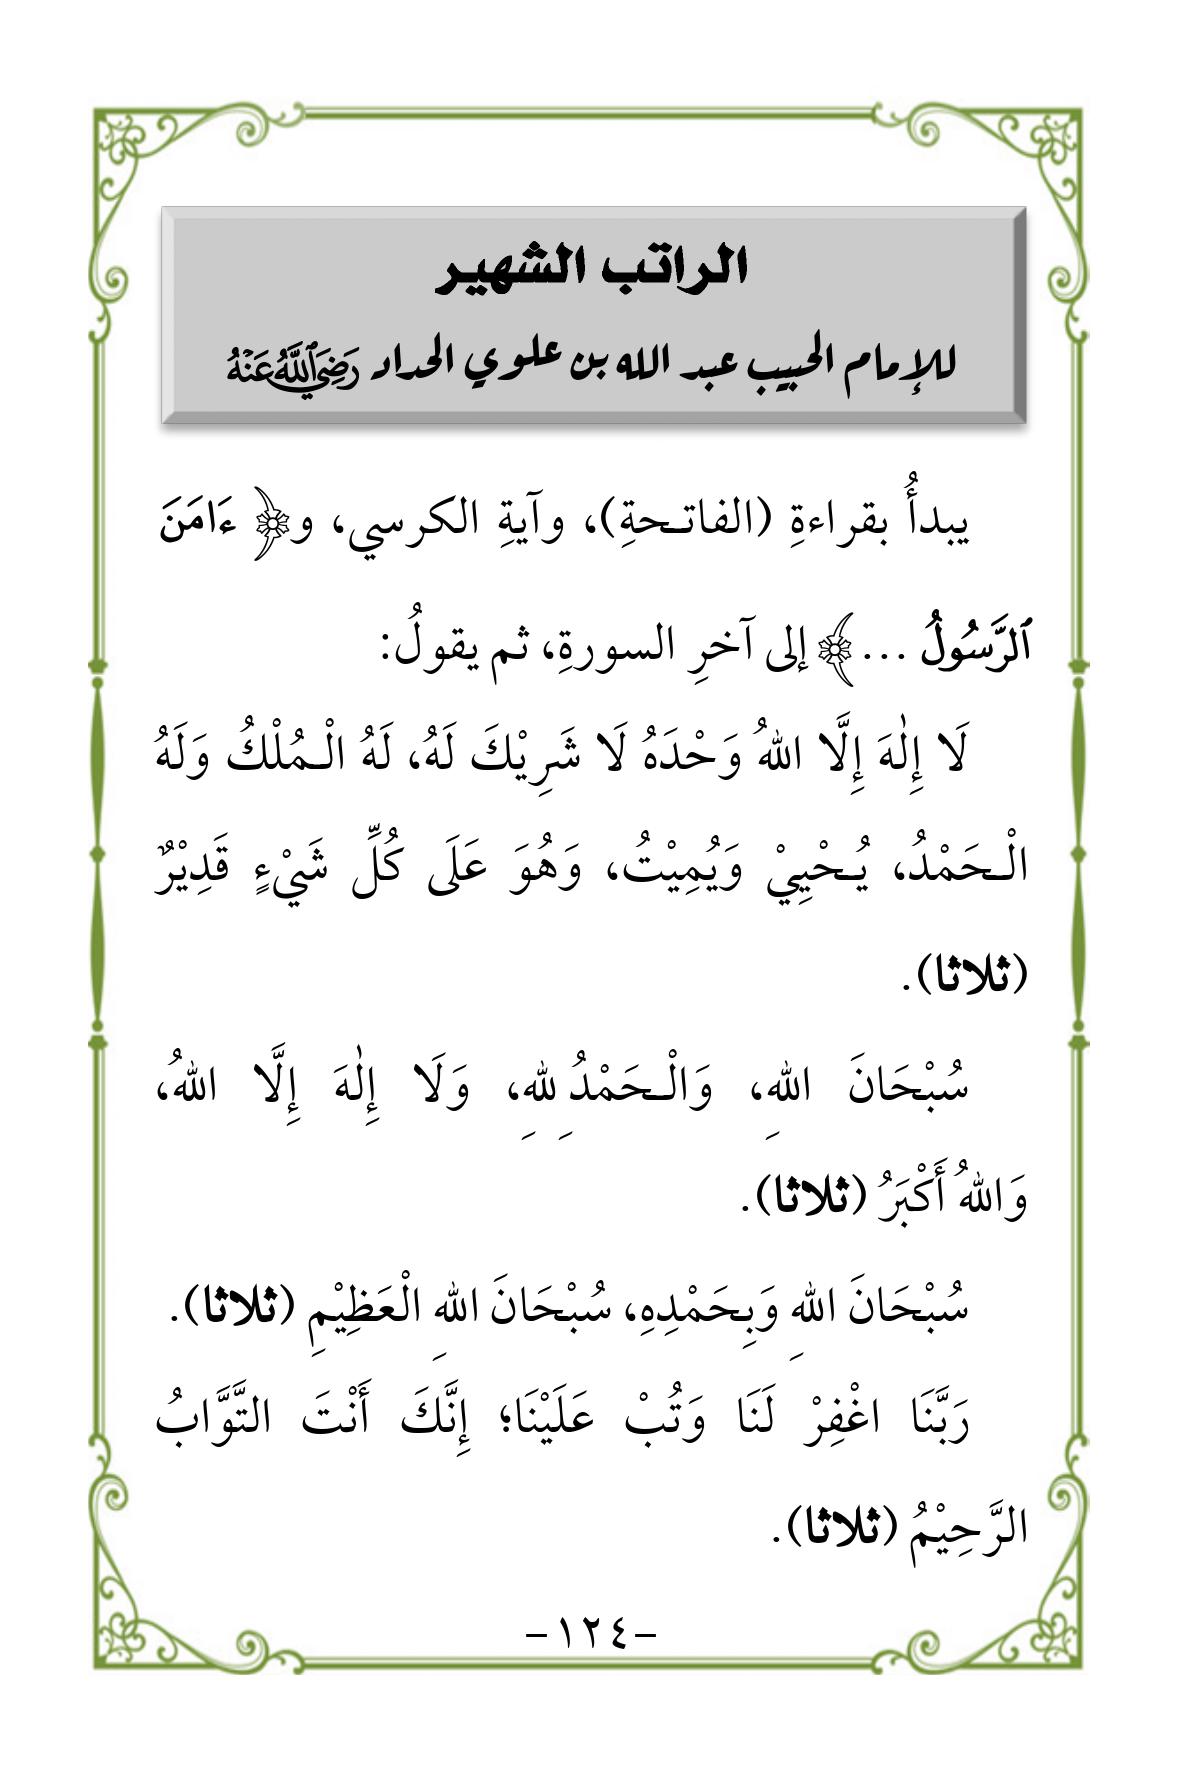 الراتب الشهير
للإمام الحبيب عبد الله بن علوي الحداد رَضِيَ ٱللَّهُ عَنْهُ
يبدأُ بقراءةِ (الفاتـحةِ)، وآيةِ الكرسي، و﴿ ءَامَنَ
ٱلرَّسُولُ ...﴾ إلى آخرِ السورةِ، ثم يقولُ:
لَا إِلٰهَ إِلَّا اللهُ وَحْدَهُ لَا شَرِيْكَ لَهُ، لَهُ الْـمُلْكُ وَلَهُ
الْـحَمْدُ، يُـحْيِيْ وَيُمِيْتُ، وَهُوَ عَلَى كُلِّ شَيْءٍ قَدِيْرٌ
(ثلاثا).
سُبْحَانَ اللهِ، وَالْـحَمْدُ لِلهِ، وَلَا إِلٰهَ إِلَّا اللهُ،
وَاللهُ أَكْبَرُ (ثلاثا).
سُبْحَانَ اللهِ وَبِحَمْدِهِ، سُبْحَانَ اللهِ الْعَظِيْمِ (ثلاثا).
رَبَّنَا اغْفِرْ لَنَا وَتُبْ عَلَيْنَا؛ إِنَّكَ أَنْتَ التَّوَّابُ
الرَّحِيْمُ (ثلاثا).
-١٢٤-